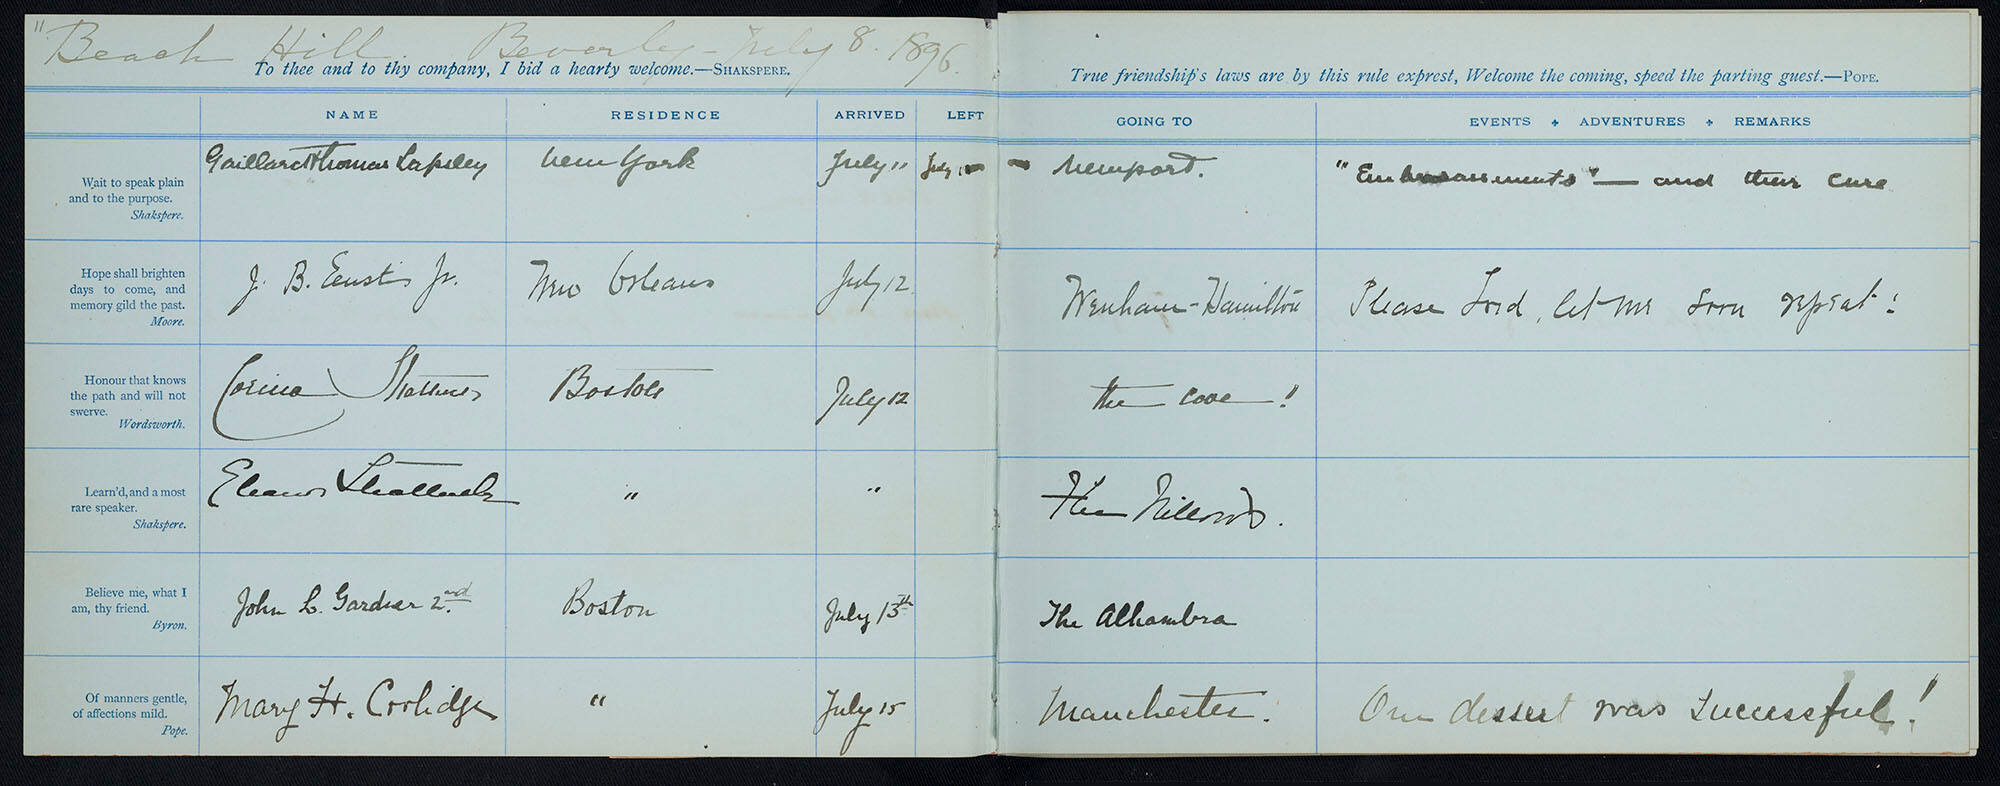 "Beach Hill. Beverly - July 8. 1896.
To thee and to thy company, I bid a hearty welcome.—SHAKSPERE.
True friendship's laws are by this rule exprest, Welcome the coming, speed the parting guest.—POPE.
NAME RESIDENCE ARRIVED LEFT GOING TO EVENTS ✦ ADVENTURES ✦ REMARKS
Wait to speak plain
and to the purpose.
Shakspere.
Gaillard Thomas Lapsley New York July 11 July Newport. "Embarrassments" — and their cure
Hope shall brighten
days to come, and
memory gild the past.
Moore.
J. B. Eustis Jr. New Orleans July 12 Wenham-Hamilton Please Lord, let me soon repeat!
Honour that knows
the path and will not
swerve.
Wordsworth.
Corina Shattuck Boston July 12 the cove!
Learn'd, and a most
rare speaker.
Shakspere.
Eleanor Shattuck " " The Willows.
Believe me, what I
am, thy friend.
Byron.
John L. Gardner 2nd. Boston July 13th The Alhambra
Of manners gentle,
of affections mild.
Pope.
Mary H. Coolidge " July 15 Manchester. Our dessert was successful!